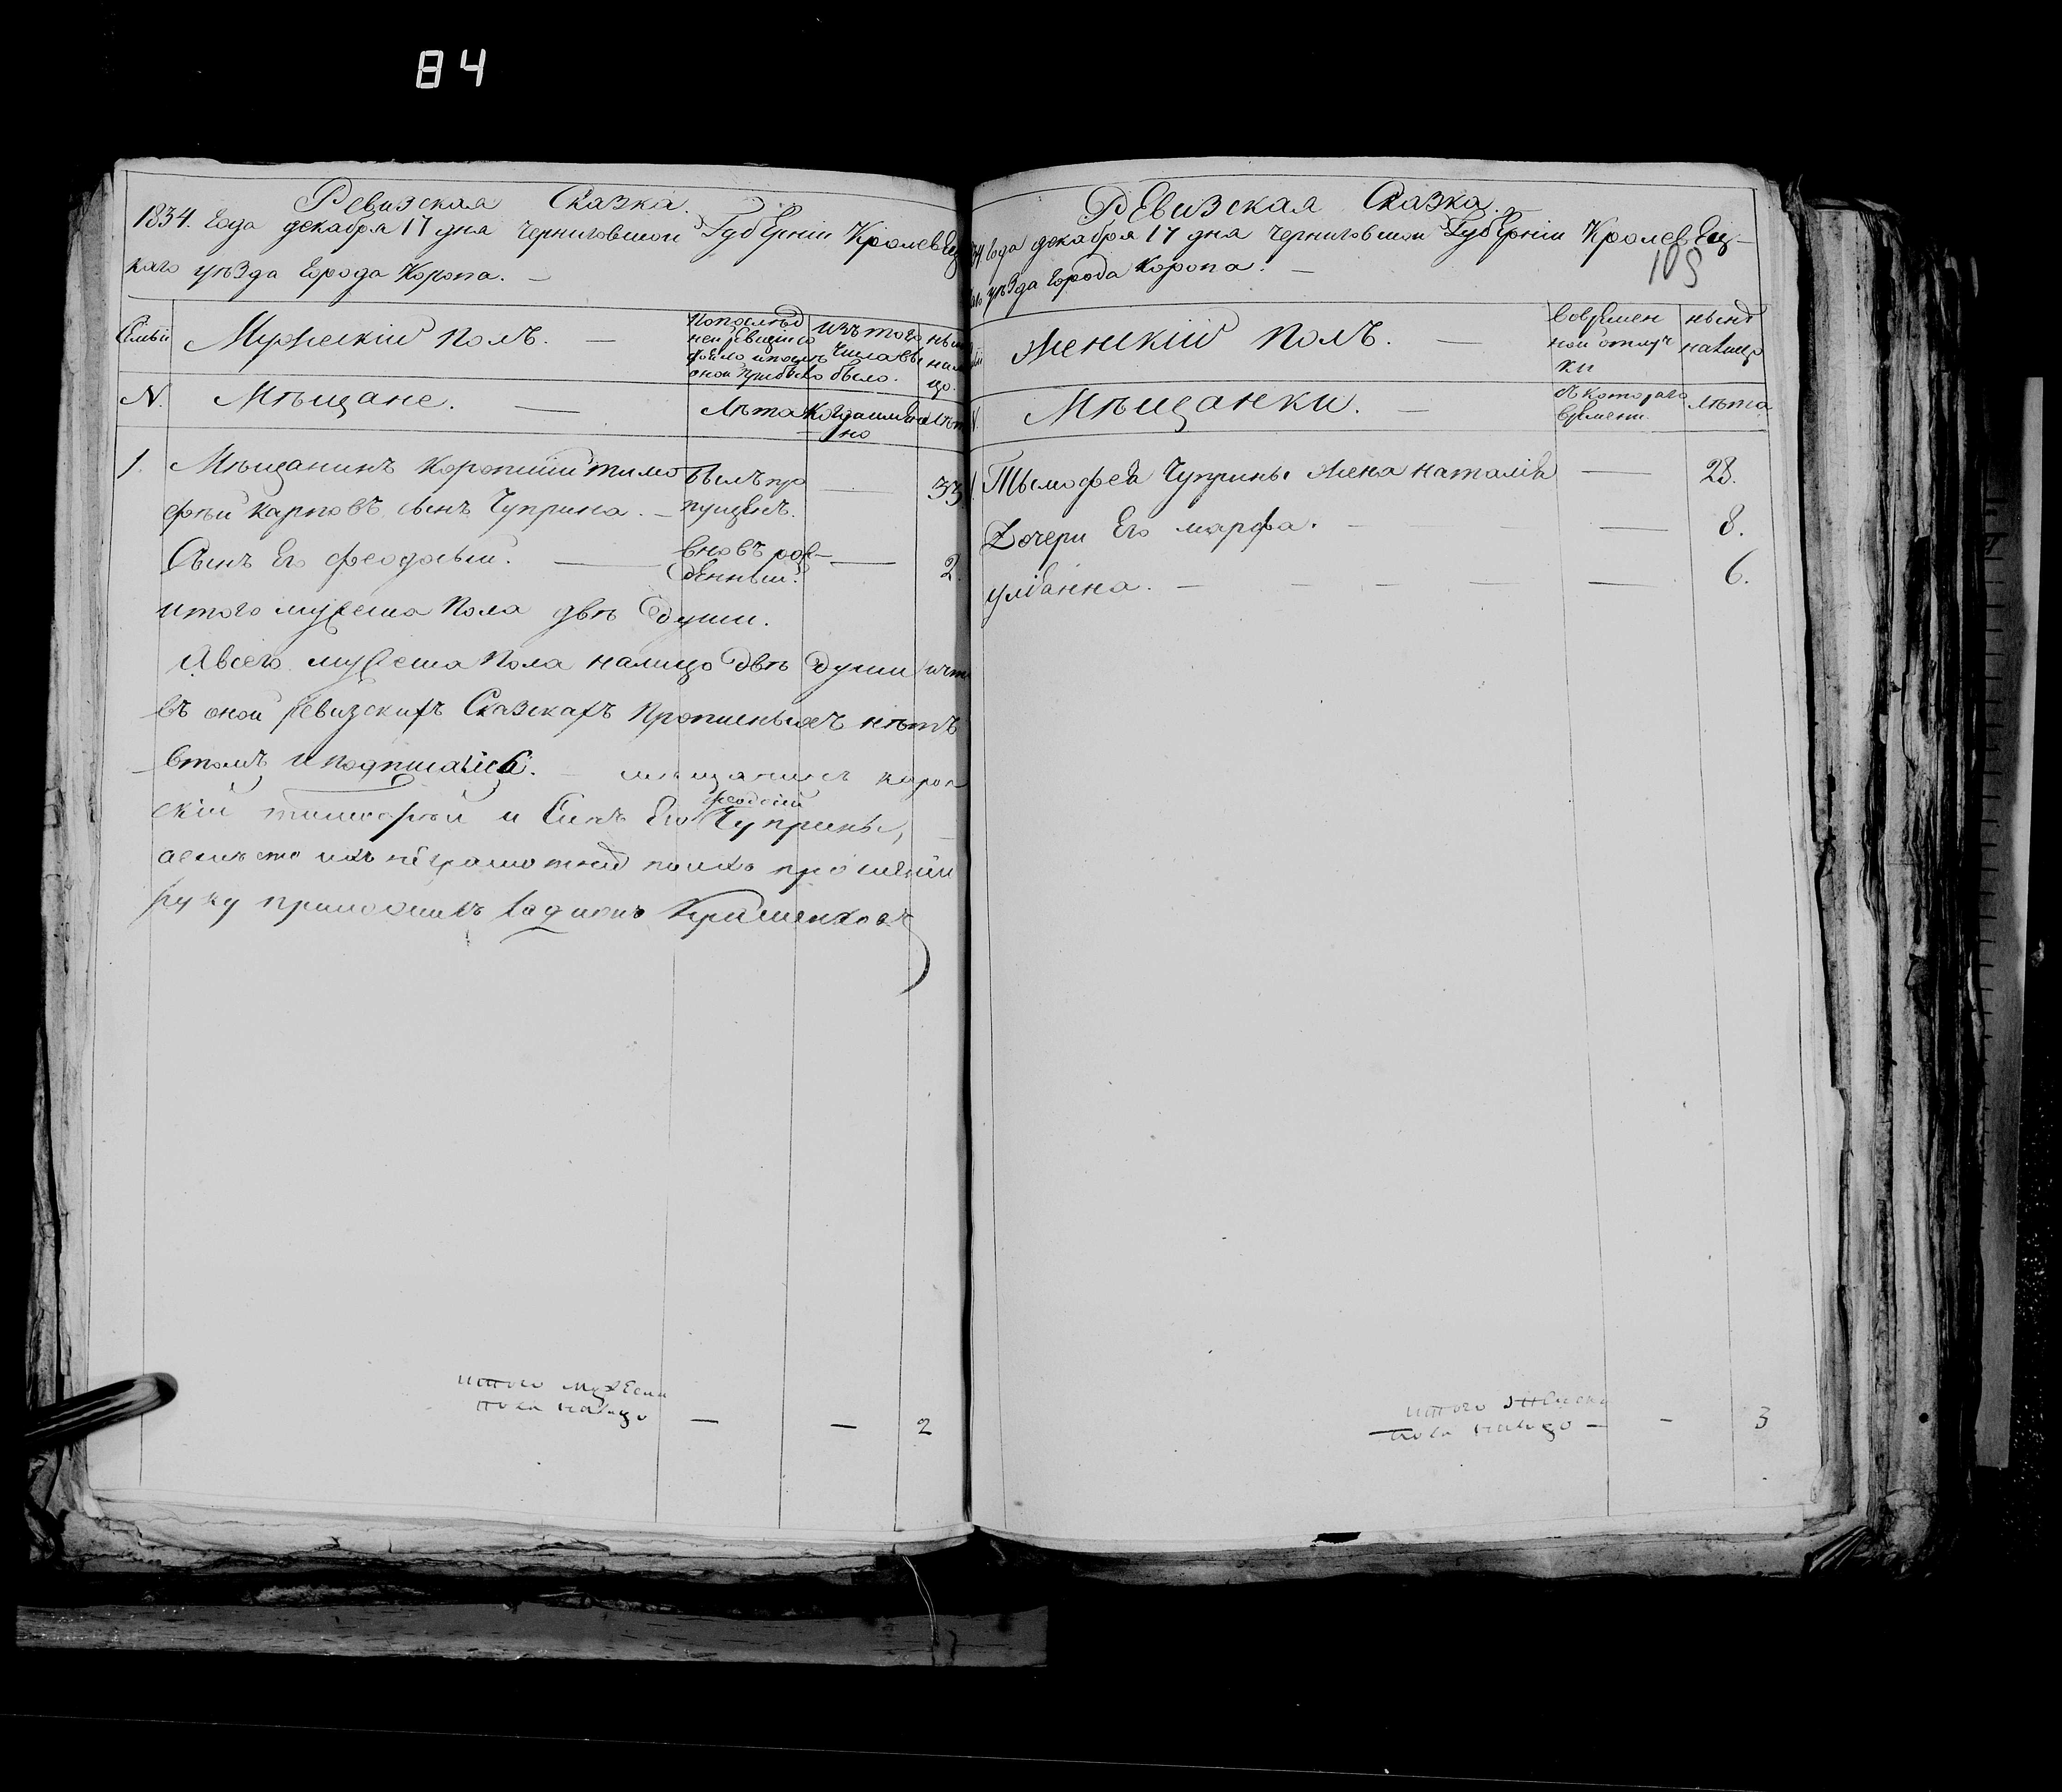 84
Ревизская Сказка.
1834. Года декабря 17 дня Черниговской Губернiи Кролевец
каго уѣзда Города Коропа. —
Семьи
Мужескiй Полъ. —
Попослѣд
ней ревизiи со
стояло и послѣ
оной прибыло
изъ того
числа вы
было.
ны
нали
цо.
N.
Мѣщане. —
Лѣта
Когда имен
но
лѣт
1. Мѣщанинъ Коропскiй тимо был про — 33
фѣй карповъ сынъ Чуприна. — пущенъ.
Сынъ Его феодосый. — вновъ рож — 2.
денный.
итого мужеска Пола двѣ души.
А всего мужеска Пола налицо двѣ души и что
въ оной ревизскихъ Сказкахъ Прописныхъ нѣтъ
втомъ и подписалися. — мѣщанинъ короп
скiй тимофѣй и Синъ Его феодосiй Чуприны,
а вмѣсто ихъ неграмотныхъ поихъ прошенiи
руку приложилъ
итого мужеска
пола налицо — — 2
Ревизская Сказка.
34 Года декабря 17 дня Черниговской Губернiи Кролевец—
каго уѣзда Города Коропа. —
109
Женскiй Полъ. —
Вовремен
ной отлуч
ки
нынѣ
налицо
N.
Мѣщанки. —
съ котораго
времени.
лѣта
1 Тымофея Чуприны жена наталiя — 28.
Дочери Его марфа. — — 8.
улiанна. — — — — — 6.
итого женска
пола налицо — — 3